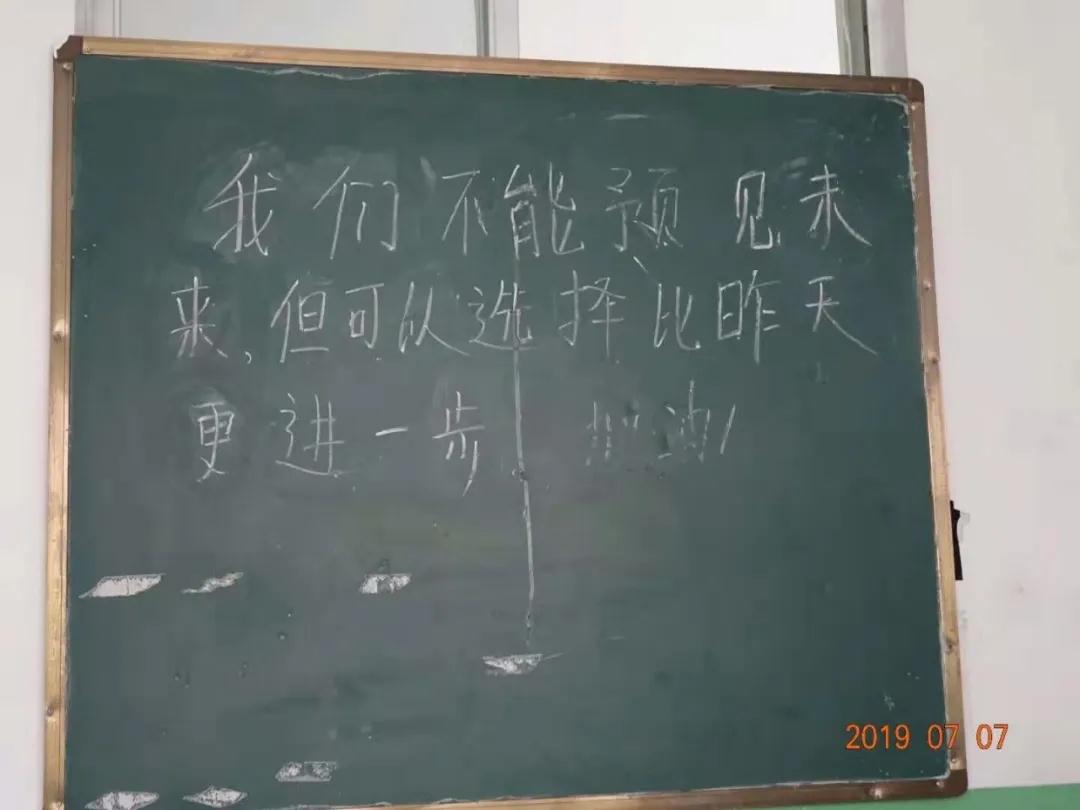 我们不能预见未
来,但可以选择比昨天
更进一步 加油!
2019 07 07